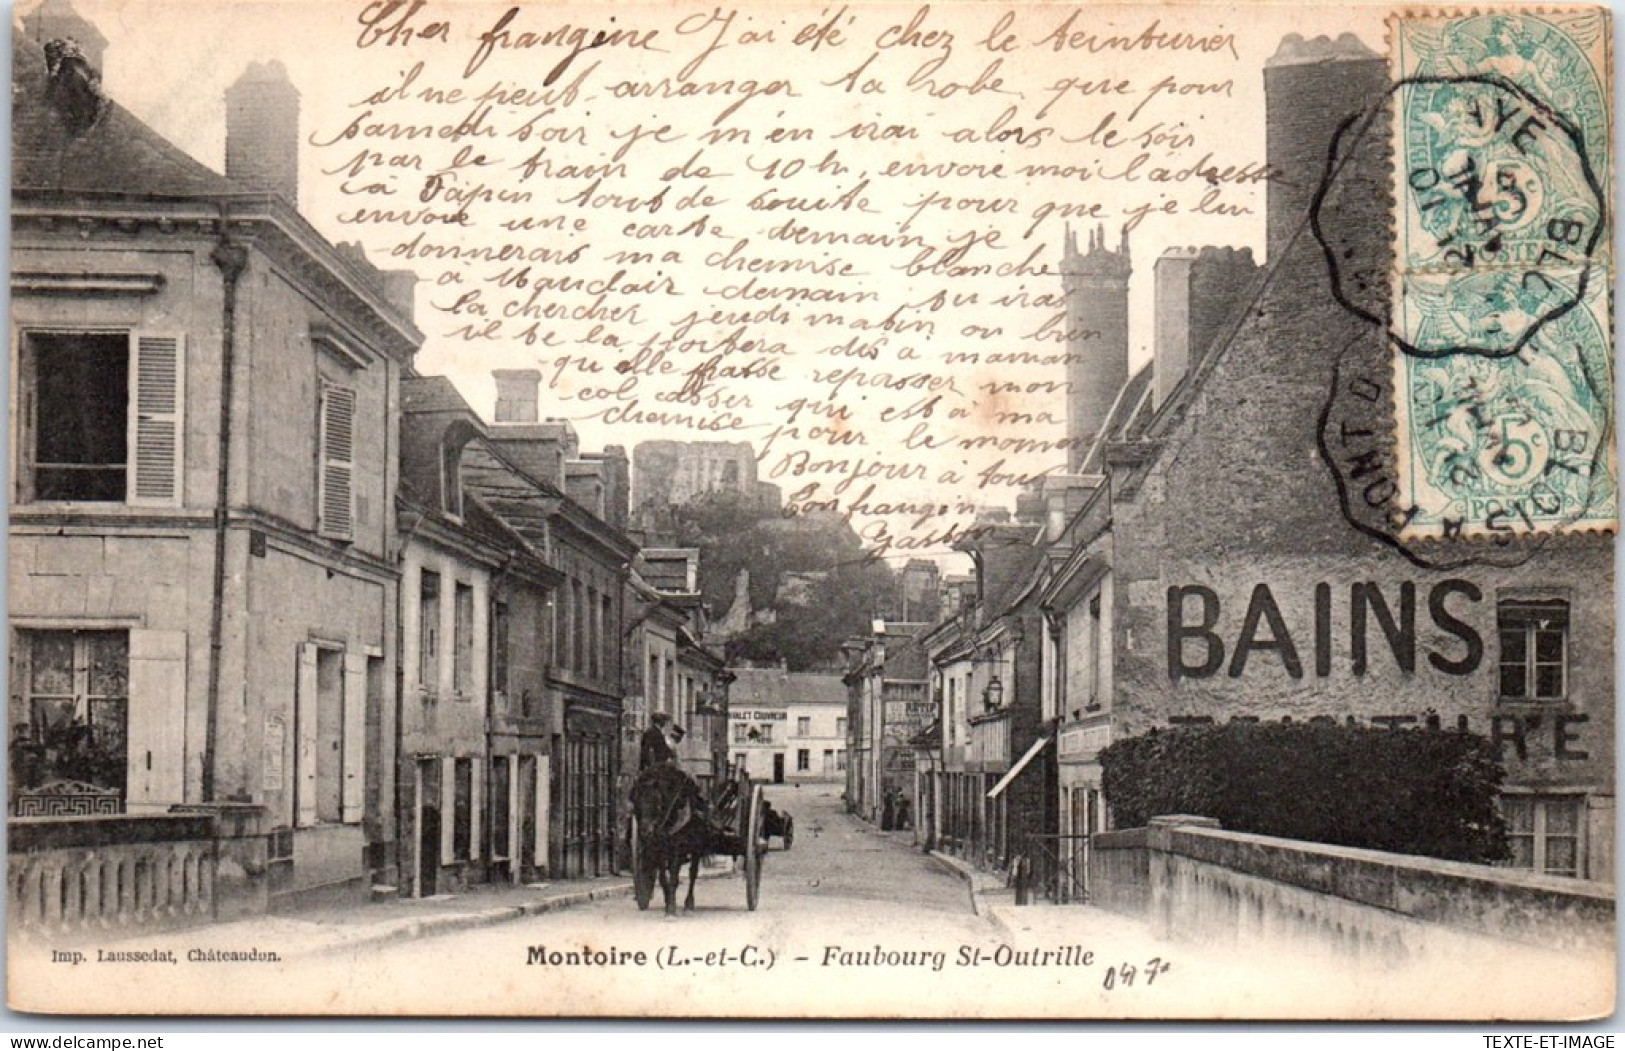 Cher frangine J'ai été chez le teinturier
il ne peut arranger ta robe que pour
samedi soir je m'en irai alors le soir
par le train de 10h, envoie moi l'adresse
à Papin tout de souite pour que je lui
envoie une carte demain, je
donnerais ma chemise blanche
à Mauclair demain, tu iras
la chercher jeudi matin ou bien
il te la portera dis à maman
qu'elle fasse repasser mon
col casser qui est à ma
chemise pour le moment
Bonjour à tous
ton frangin
Gaston
POSTES
5c
POSTES
BLOIS A PONT D
BAINS
TEINTURE
VALET COUVREUR
Imp. Laussedat, Châteaudun.
Montoire (L.-et-C.) – Faubourg St-Outrille
TEXTE-ET-IMAGE
delcampe.net